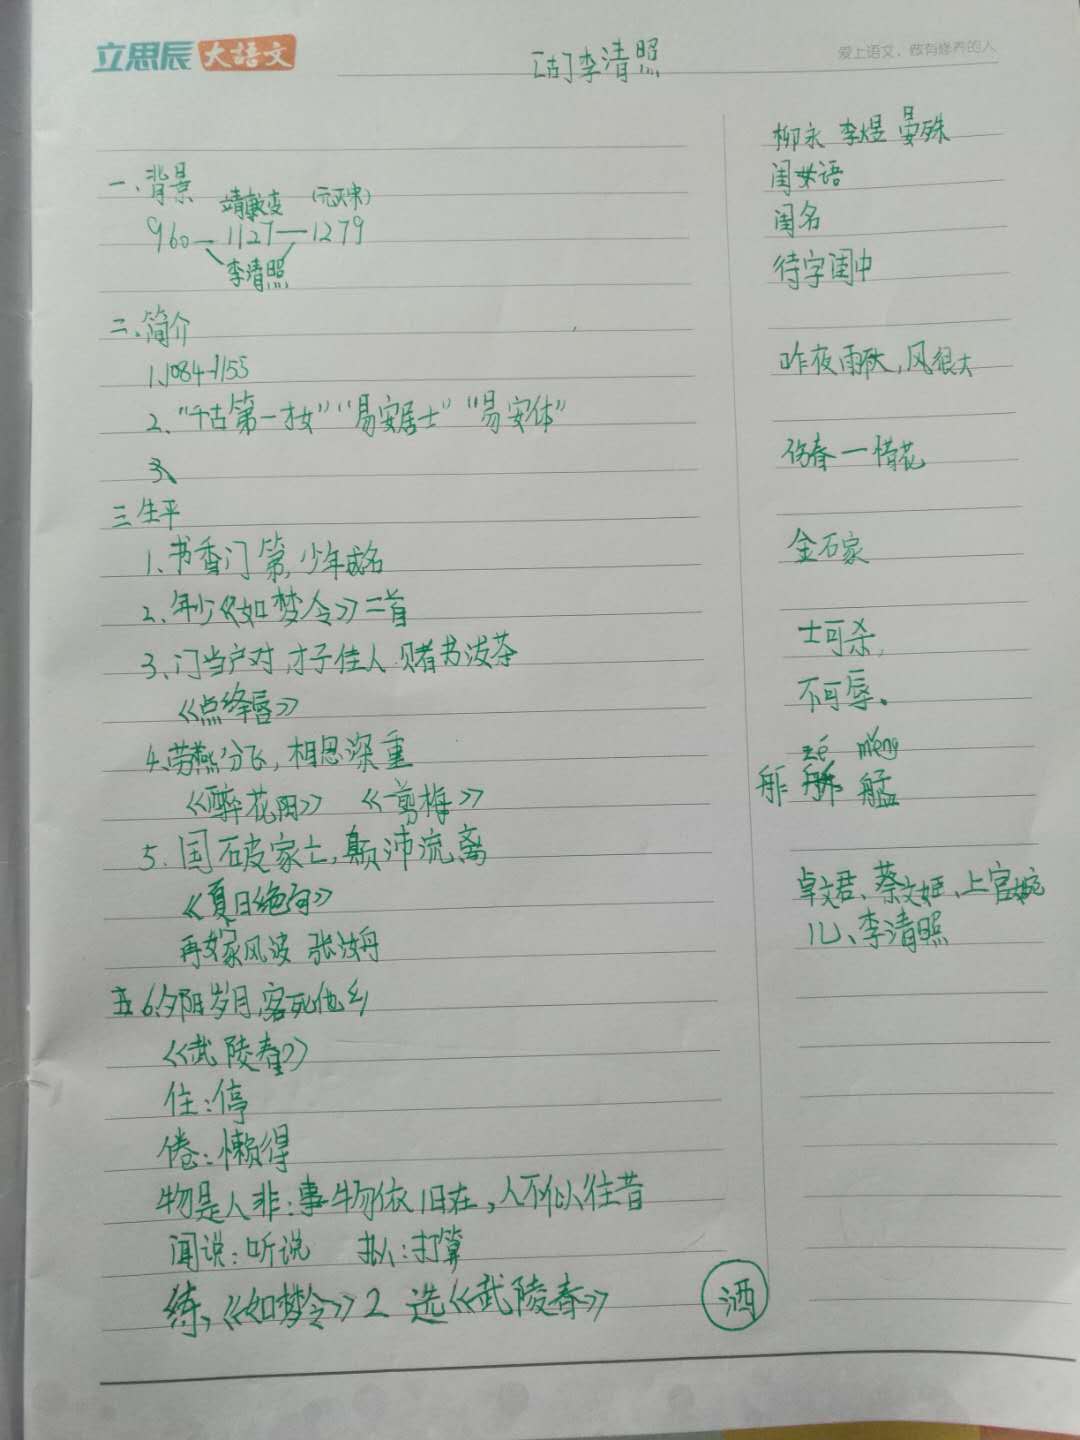 立思辰大语文
[古]李清照
爱上语文、做有修养的人
一、背景
靖康变 (元灭宋)
960—1127—1279
李清照
二、简介
1.1084-1155
2、"千古第一才女" "易安居士" "易安体"
3、
三生平
1、书香门第,少年成名
2、年少《如梦令》二首
3、门当户对,才子佳人 赌书泼茶
《点绛唇》
4、劳燕分飞,相思深重
《醉花阴》 《一剪梅》
5.国破家亡,颠沛流离
《夏日绝句》
再嫁风波 张汝舟
6、夕阳岁月,客死他乡
《武陵春》
住:停
倦:懒得
物是人非:事物依旧在,人不似往昔
闻说:听说 拟:打算
练、《如梦令》2 选《武陵春》
酒
柳永 李煜 晏殊
闺女语
闺名
待字闺中
昨夜雨疏,风很大
伤春—惜花
金石家
士可杀,
不可辱。
zé měng
舴 舴 艋
卓文君、蔡文姬、上官婉
儿、李清照